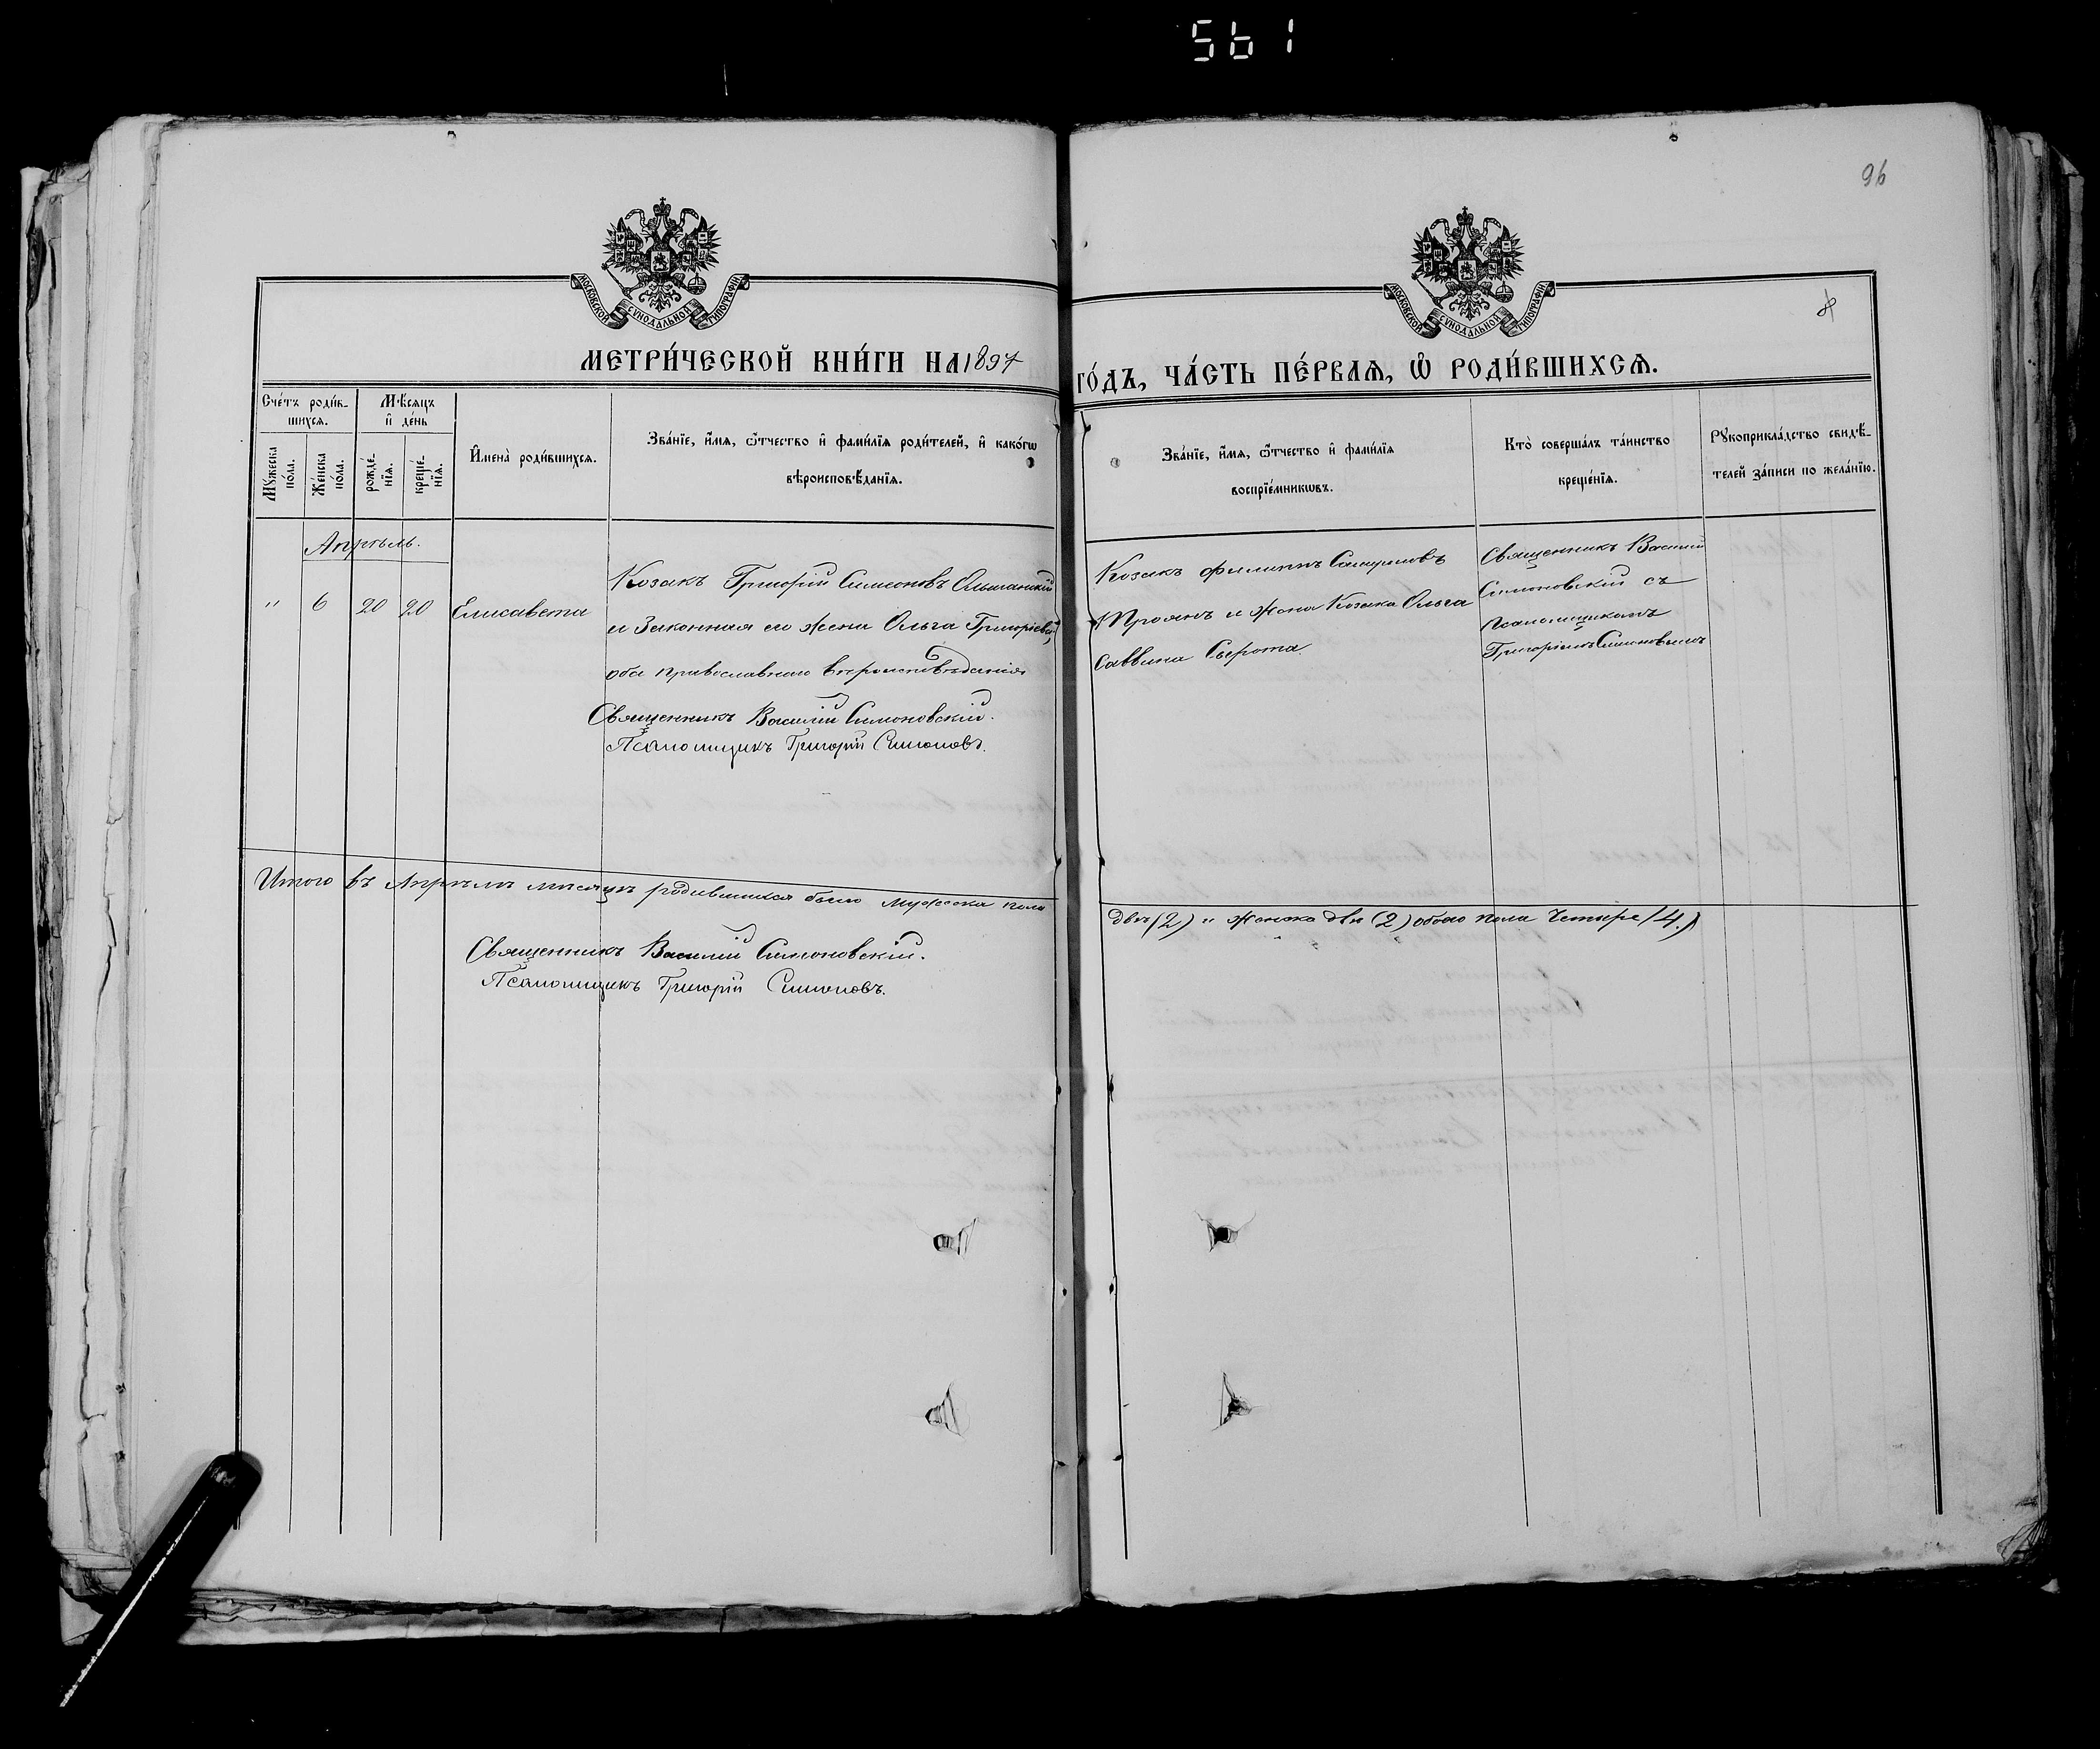 561
96
МОСКОВСКОЙ СѴНОДАЛЬНОЙ ТИПОГРАФІИ
МОСКОВСКОЙ СѴНОДАЛЬНОЙ ТИПОГРАФІИ
МЕТРИ́ЧЕСКОЙ КНИ́ГИ НА 1897
ГО́ДЪ, ЧА́СТЬ ПЕ́РВАѦ, Ѽ РОДИ́ВШИХСѦ.
Сче́тъ роди́в-
шихсѧ.
Мꙋ́жеска по́ла.
Же́нска по́ла.
Мѣ́сѧцъ
и҆ де́нь
рожде́-
нїѧ.
креще́-
нїѧ.
И҆мена̀ роди́вшихсѧ.
Зва́нїе, и҆́мѧ, ѻ҆́тчество и҆ фами́лїѧ роди́телей, и҆ како́гѡ
вѣроисповѣ́данїѧ.
Зва́нїе, и҆́мѧ, ѻ҆́тчество и҆ фами́лїѧ
воспрїе́мникѡвъ.
Кто̀ соверша́лъ та́инство
креще́нїѧ.
Рꙋкоприкла́дство свидѣ́-
телей за́писи по жела́нїю.
Апрѣль.
" 6 20 20 Елисавета
Козакъ Григорій Симеоновъ Ольшанскій
и Законная его жена Ольга Григоріева,
оба православнаго вѣроисповѣданія
Священникъ Василій Симоновскій.
Псаломщикъ Григорій Симоновъ.
Козакъ Филиппъ
Троянъ и жена Козака Ольга
Саввина Сирота.
Священникъ Василій
Симоновскій съ
псаломщикомъ
Григоріемъ Симоновымъ
Итого въ Апрѣлѣ мѣсяцѣ родившихся было мужеска пола
двѣ (2) и женска двѣ (2) обоего пола четыре (4.)
Священникъ Василій Симоновскій.
Псаломщикъ Григорій Симоновъ.